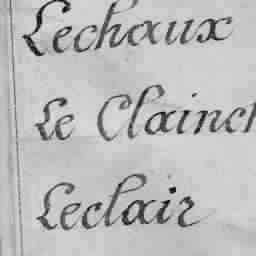 Lechaux
Le Clainch
Leclair